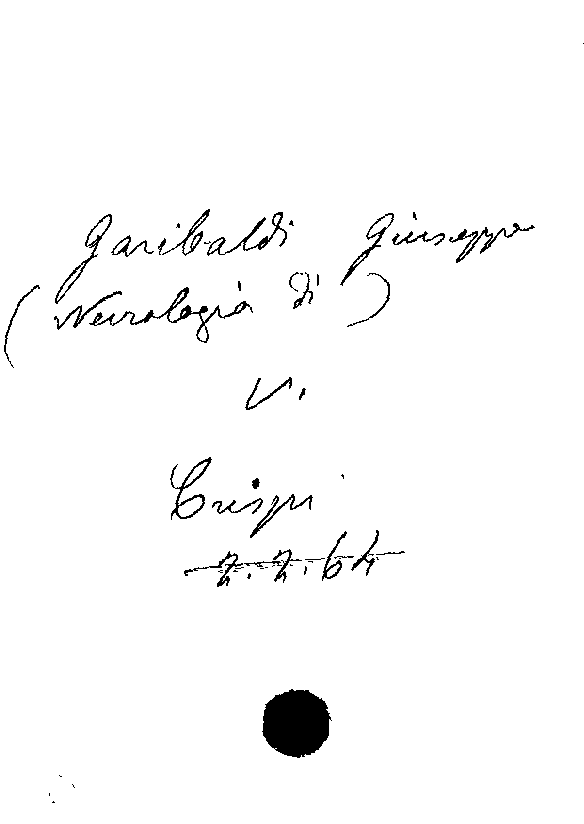 Garibaldi Giuseppe
(Necrologia di )
V.
Crispi
2.2.64